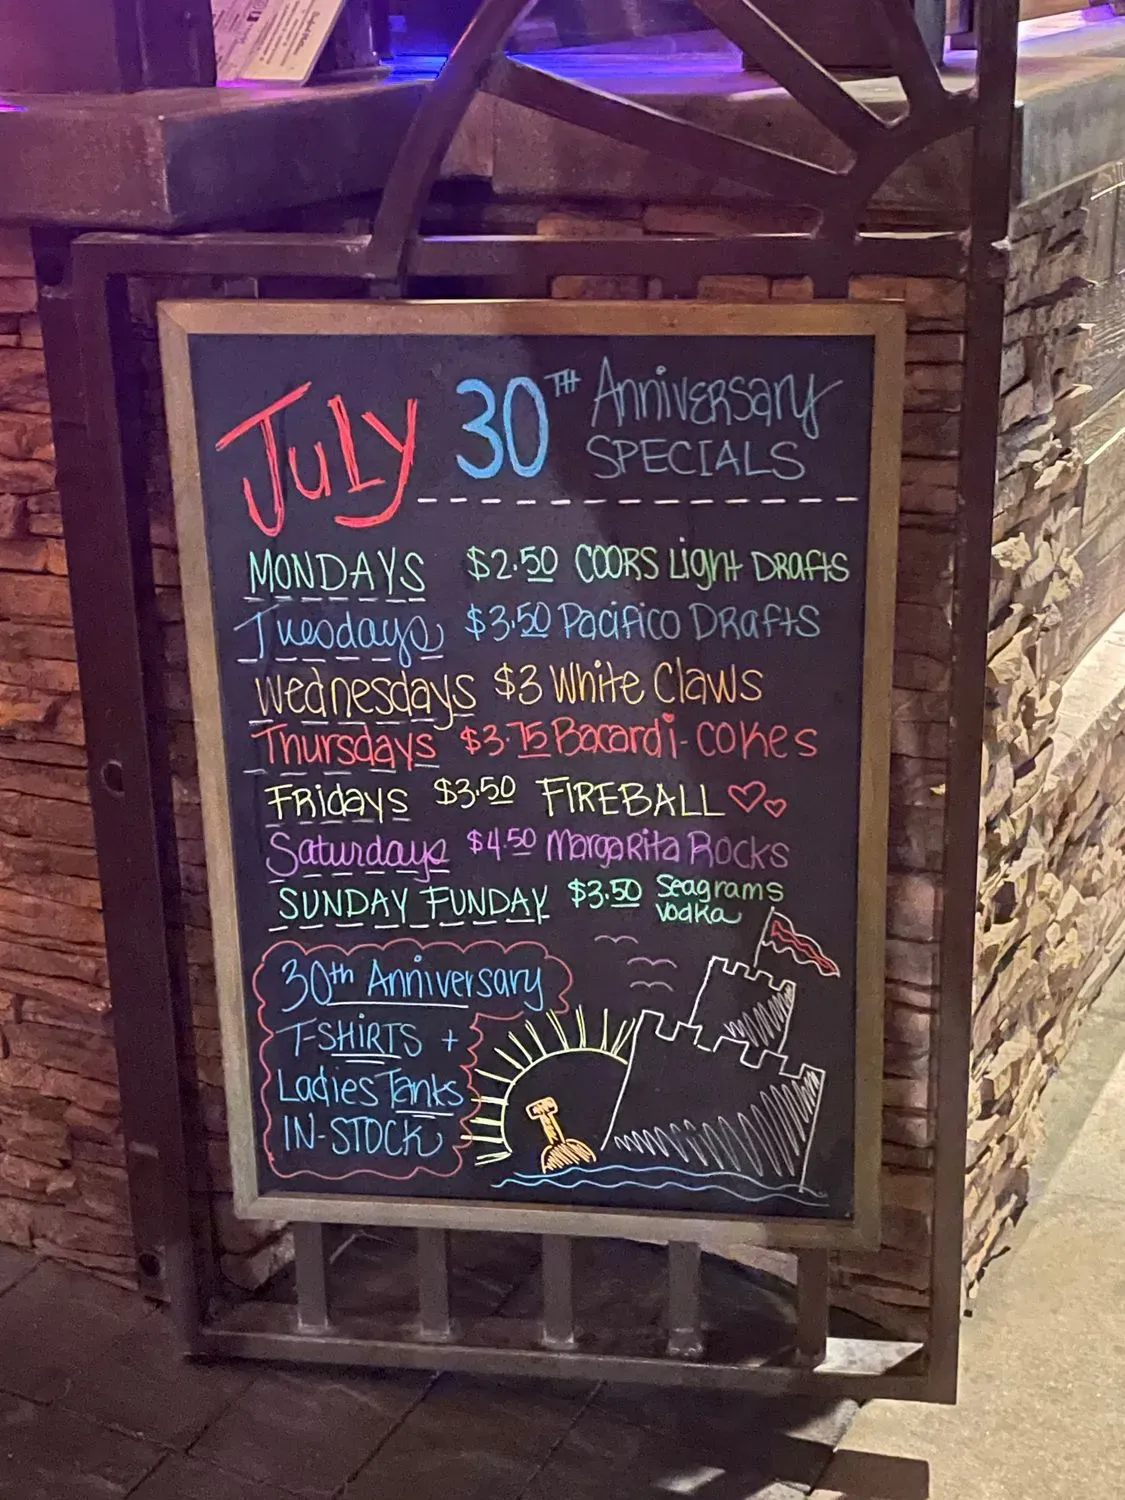 July 30TH Anniversary
SPECIALS
MONDAYS $2.50 COORS Light DRAftS
Tuesdays $3.50 Pacifico DRAftS
Wednesdays $3 White Claws
Thursdays $3.75 Bacardi-cokes
Fridays $3.50 FIREBALL
Saturdays $4.50 MargaRita Rocks
SUNDAY FUNDAY $3.50 Seagrams
vodka
30th Anniversary
T-SHIRTS +
Ladies Tanks
IN-STOCK